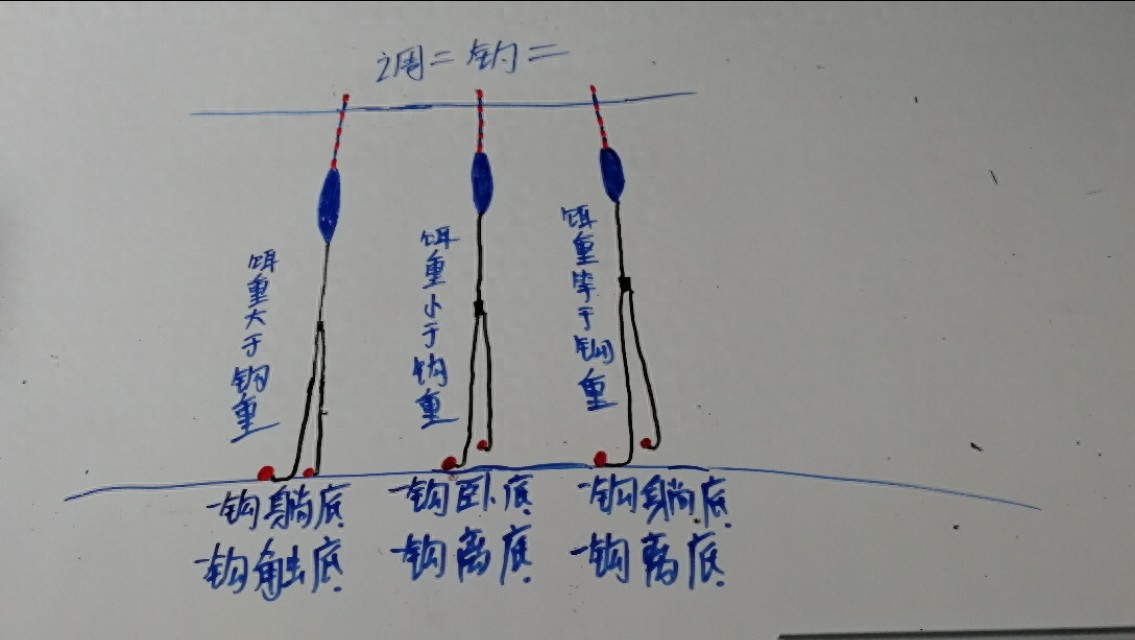 调二钓二
饵重大于钩重
饵重小于钩重
饵重等于钩重
一钩躺底
一钩触底
一钩卧底
一钩离底
一钩躺底
一钩离底